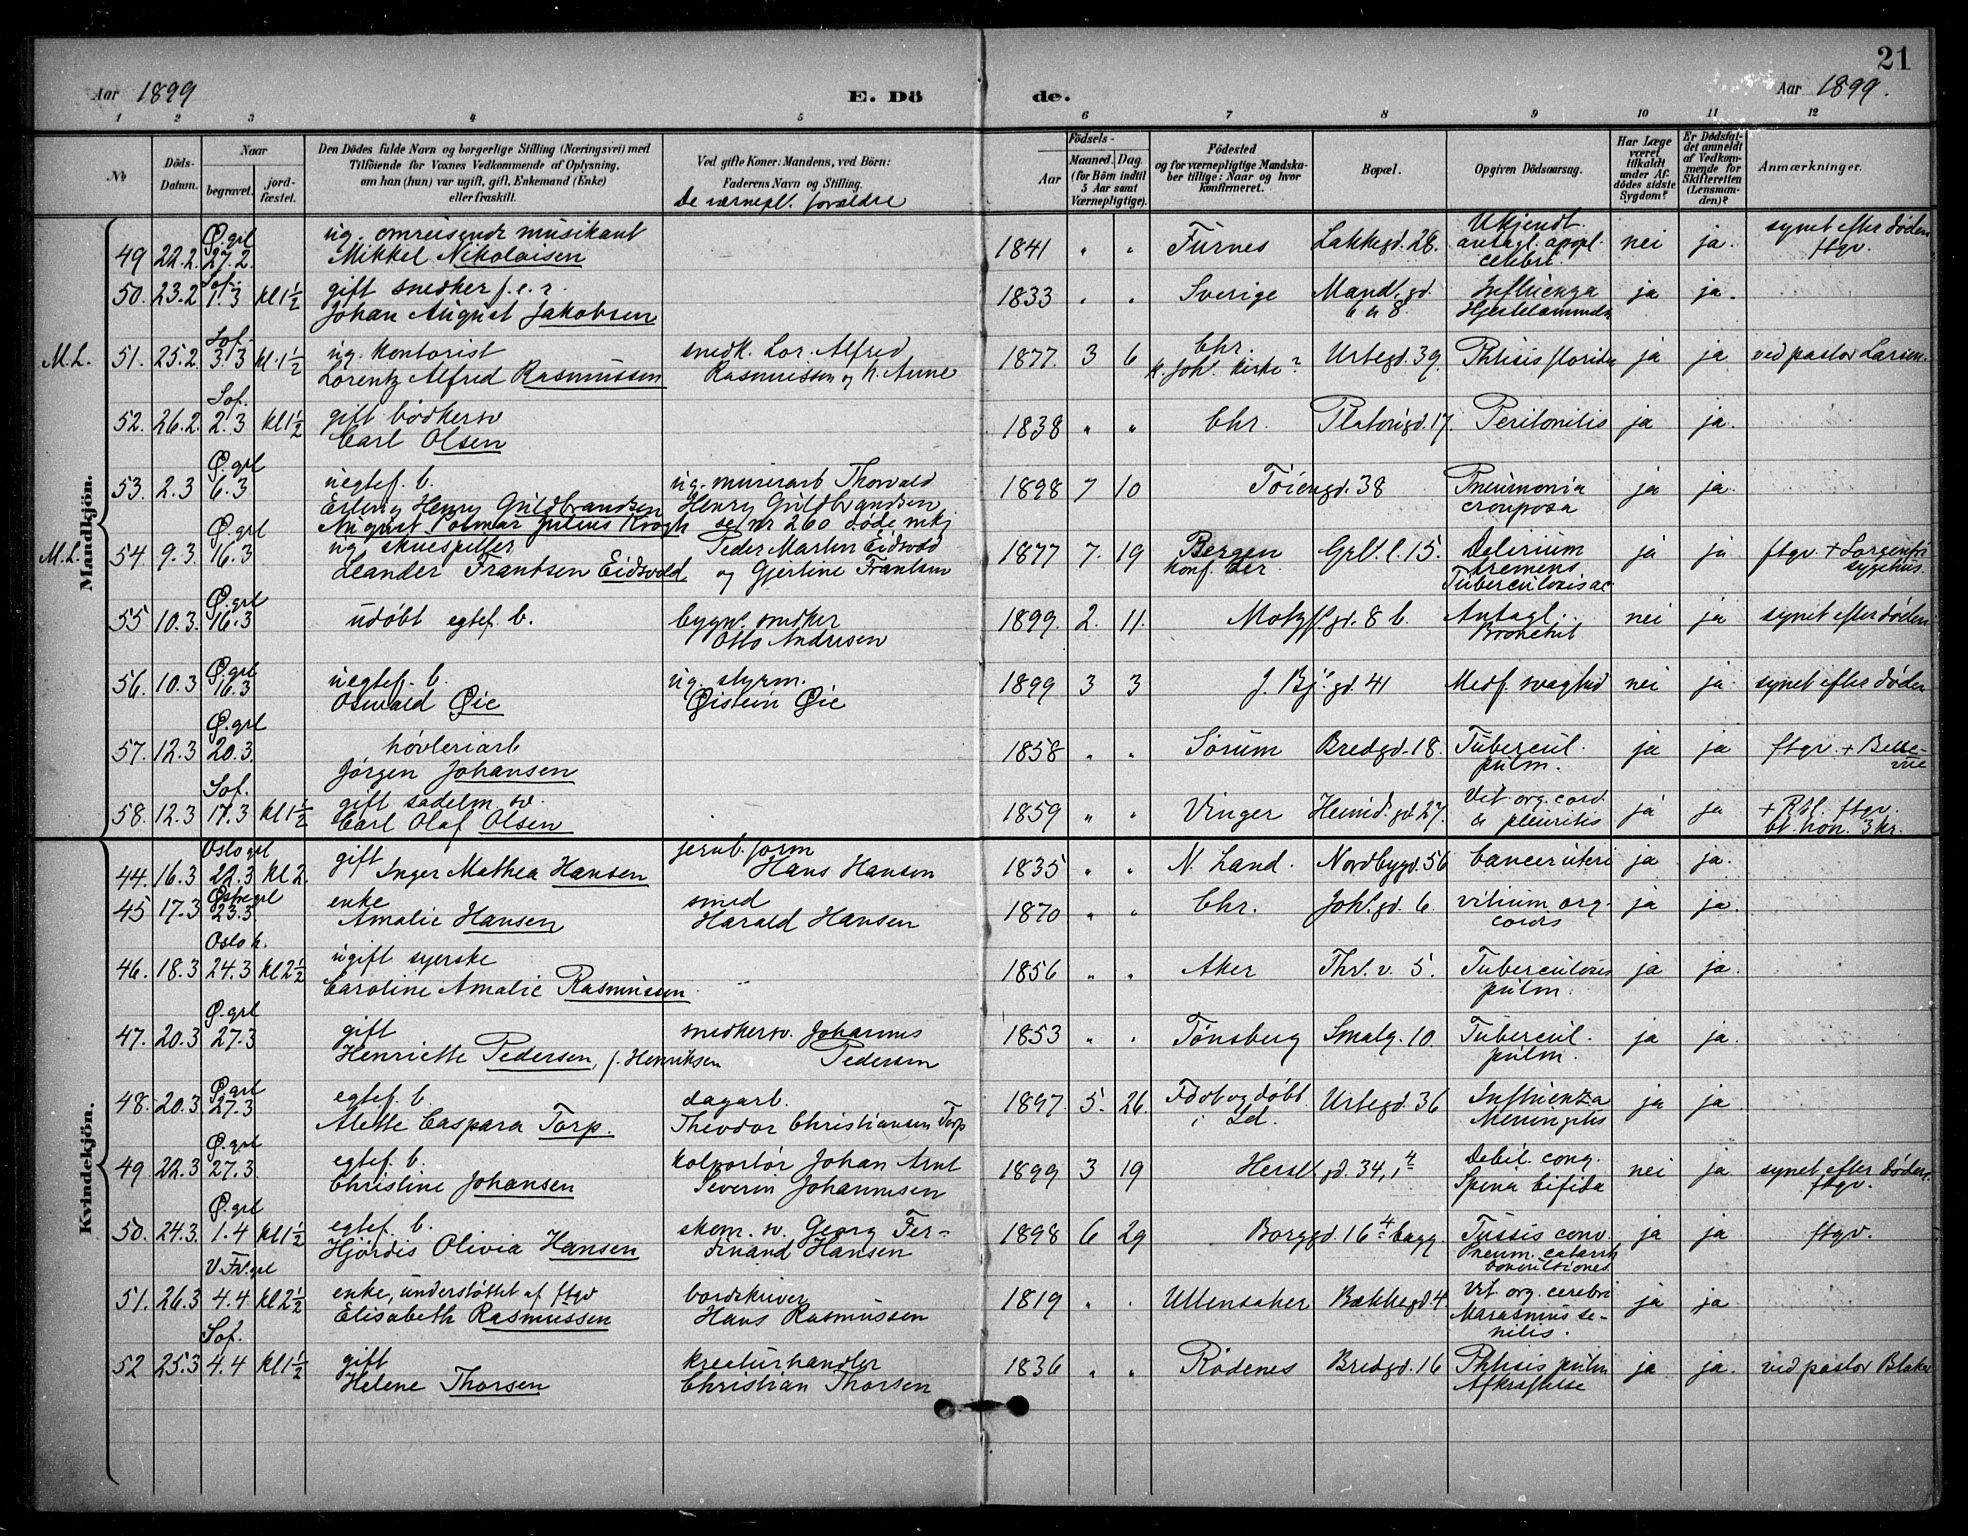 21
Aar 1899 E. Dö de. Aar 1899.
1 2 3 4 5 6 7 8 9 10 11 12
No
Döds-Datum.
Naar
begravet.
jord-fæstet.
Den Dödes fulde Navn og borgerlige Stilling (Næringsvei) med
Tilföiende for Voxnes Vedkommende af Oplysning,
om han (hun) var ugift, gift, Enkemand (Enke)
eller fraskilt.
Ved gifte Koner: Mandens, ved Börn:
Faderens Navn og Stilling.
De værnepl. forældre
Födsels-
Aar
Maaned. Dag.
(for Börn indtil
5 Aar samt
Værnepligtige).
Födested
og for værnepligtige Mandska-
ber tillige: Naar og hvor
konfirmeret.
Bopæl.
Opgiven Dödsaarsag.
Har Læge
været
tilkaldt
under Af-
dödes sidste
Sygdom?
Er Dödsfal-
det anmeldt
af Vedkom-
mende for
Skifteretten
(Lensman-
den)?
Anmærkninger.
Mandkjön.
49 22.2. Ø. grl 27.2. ug. omreisende musikant 1841 " " Furnes Lakkegd. 28. Ukjendt nei ja. synet efter døden
Mikkel Nikolaisen antagl. apopl. ftgv.
cerebri.
50. 23.2 Sof. 1.3 kl 1½ gift snedker f.e.r. 1833 " " Sverige Mandl. gd. Influenza ja ja.
Johan August Jakobsen 6 a 8 Hjertelammelse
M.L. 51. 25.2. Sof. 3.3 kl. 1½ ug. kontorist snedk. Lor. Alfred 1877. 3 6 Chr. Urtegd. 39. Phtisis florida ja ja ved pastor Larsen.
Lorentz Alfred Rasmussen Rasmussen og h. Anne k. Joh. kirke?
52. 26.2. Sof. 2.3 kl 1½ gift bødkersv 1838 " " Chr. Platousgd. 17. Peritonitis ja ja.
Carl Olsen
53. 2.3 Ø. grl 6.3 uegtef. b. ug. murerarb Thorvald 1898 7 10 Töiengd. 38 Pneumonia ja ja.
Erling Henry Guldbrandsen Henry Guldbrandsen crouposa
August Polmar Julius Krogh se nr 260 døde mkj
M.L. 54. 9.3. Ø. grl 16.3 ug. skuespiller Peder Martin Eidsvold 1877 7. 19 Bergen Grl. l. 15. Delirium ja ja ftgv + Lorgenfri
Leander Frantsen Eidsvold og Gjertine Frantsen konf. der tremens sygehus.
Tuberculosis ac
55 10.3. Ø. grl 16.3 udøbt egtef. b. bygn. snedker 1899. 2. 11. Motzf. gd. 8 b. Antagl. nei ja synet efter døden
Otto Andresen Bronchit
56. 10.3 Ø. grl 16.3 uegtef. b. ug. styrm. 1899 3 3 J. Bj. gd. 41 Medf. svaghed nei ja synet efter døden
Osvald Øie Øistein Øie
57. 12.3 Ø. grl 20.3. høvleriarb 1858 " " Sørum Bredgd. 18. Tubercul. ja ja ftgv. + Belle-
Jørgen Johansen pulm. vue
58. 12.3 Sof. 17.3 kl 1½ gift sadelm. sv. 1859 " " Vinger Heimd. gd 27. Vit. org. cord. ja ja + Rh. ftgv.
Carl Olaf Olsen & pleuritis bt. hon. 3 kr.
Kvindekjön.
44. 16.3 Oslo grl 22.3 kl 2. gift jernb. form 1835 " " N. Land. Nordbygd. 56 Cancer uteri ja ja.
Inger Mathea Hansen Hans Hansen
45 17.3 Østre grl 23.3 enke smed 1870 " " Chr. Joh. gd. 6. vitium org. ja ja.
Amalie Hansen Harald Hansen cordis
46. 18.3 Oslo k. 24.3 kl 2½ ugift syerske 1856 " " Aker Thv. v. 5. Tuberculosis ja ja.
Caroline Amalie Rasmussen pulm.
47. 20.3 Ø. grl 27.3 gift snedkersv. Johannes 1853 " " Tønsberg Smalg. 10. Tubercul. ja ja.
Henriette Pedersen, f. Henriksen Pedersen pulm.
48. 20.3 Ø. grl 27.3 egtef. b. dagarb. 1897. 5. 26. Født og døbt Urtegd. 36 Influentza ja ja
Alette Caspara Torp. Theodor Christiansen Torp i Ed. Meningitis
49 22.3 Ø. grl 27.3 egtef. b. kolportør Johan Arnt 1899 3 19 Hersl gd. 34, 1⁴ Debil. cong. nei ja synet efter døden
Christine Johansen Severin Johannesen Spina bifida ftgv.
50. 24.3. Ø. grl 1.4 kl 1½ egtef. b. skom. sv. Georg Fer- 1898 6 29 Borggd. 16⁴ bagg. Tussis conv ja ja ftgv.
Hjørdis Olivia Hansen dinand Hansen Pneum. catarrh
Convultiones
51. 26.3 V. Fr. grl 4.4 kl 2½ enke, understøttet af ftgv bordskriver 1819 " " Ullensaker Bækkegd. 4. Vit. org. cerebri ja ja
Elisabeth Rasmussen Hans Rasmussen Marasmus se-
nilis.
52 25.3 Sof. 4.4 kl 1½ gift kreaturhandler 1836 " " Rødenes Bredgd. 16 Phtisis pulm ja ja. ved pastor Blakes
Helene Thorsen Christian Thorsen Afkræftelse